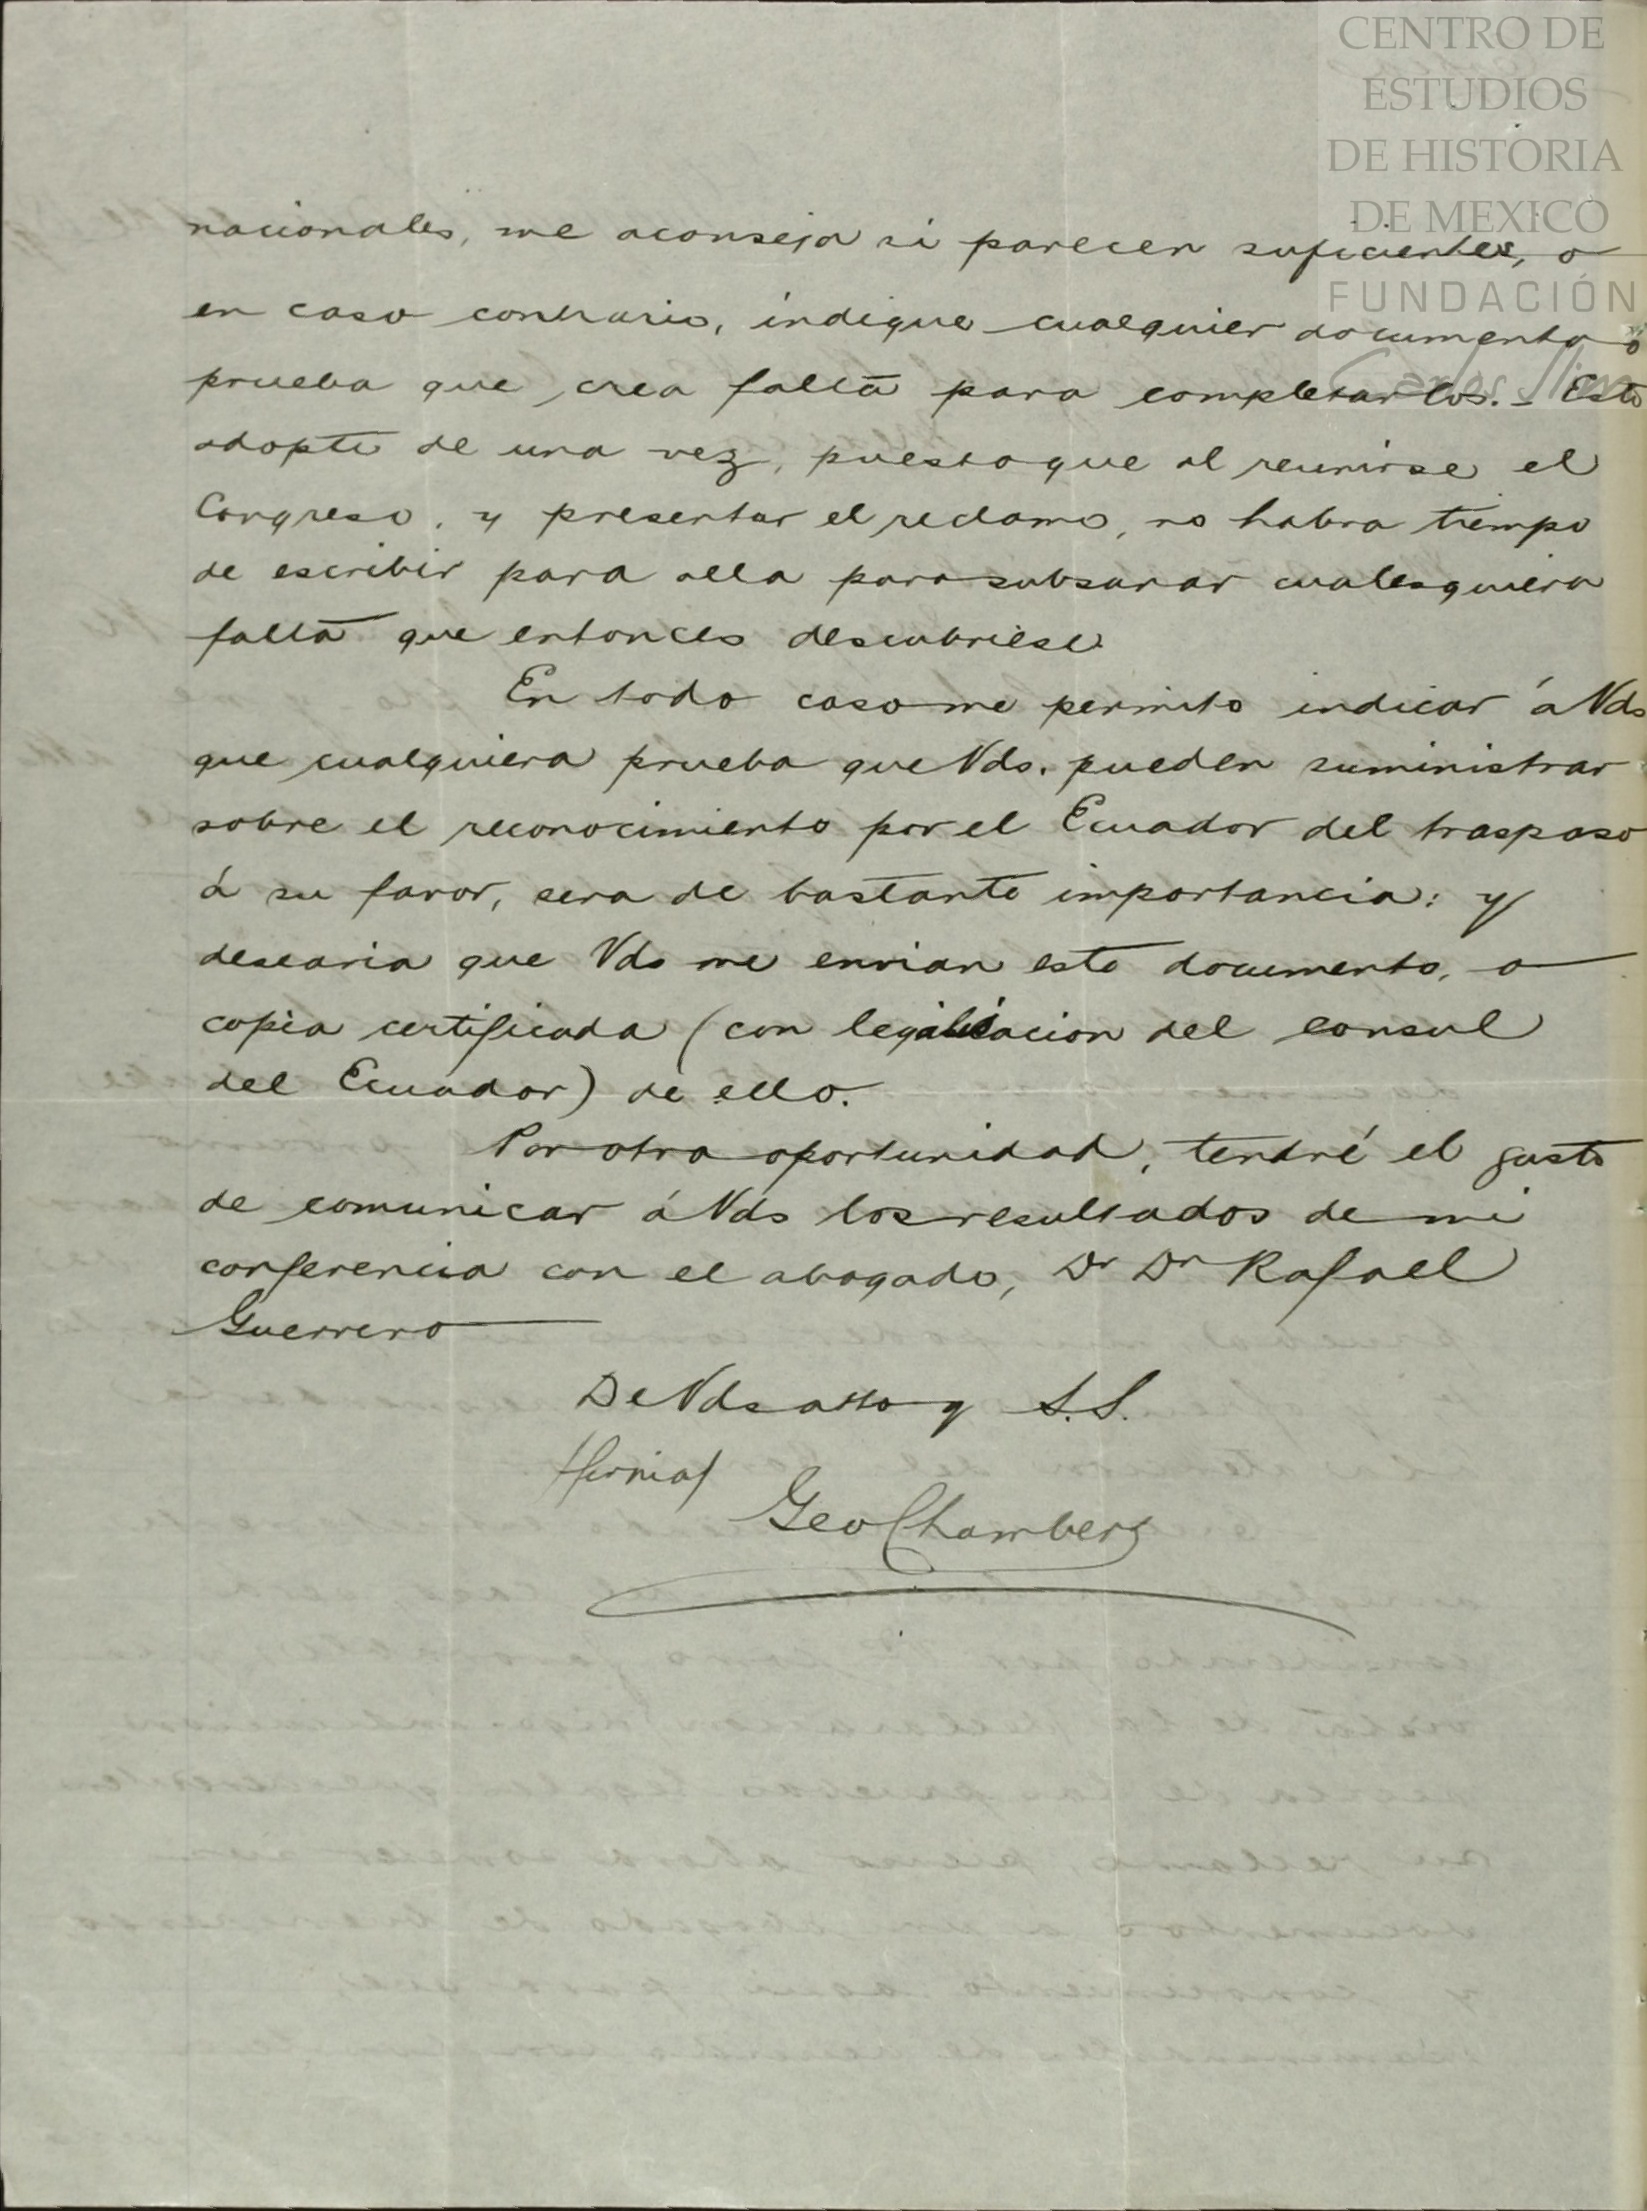 CENTRO DE
ESTUDIOS
DE HISTORIA
DE MEXICO
FUNDACIÓN
Carlos Slim
nacionales, me aconseja si parecen suficientes, o
en caso contrario, indique cualquier documento ó
prueba que crea falta para completarlos. – Esto
adopté de una vez, puesto que al reunirse el
Congreso, y presentar el reclamo, no habra tiempo
de escribir para alla para subsanar cualesquiera
falta que entonces descubriese
En todo caso me permito indicar á Vds
que cualquiera prueba que Vds. pueden suministrar
sobre el reconocimiento por el Ecuador del traspaso
á su favor, sera de bastante importancia: y
desearia que Vds me envian este documento, o
copia certificada (con legalisacion del consul
del Ecuador) de ello.
Por otra oportunidad, tendré el gusto
de comunicar á Vds los resultados de mi
conferencia con el abogado, Dr Dn Rafael
Guerrero
De Vds atto y S.S.
/firma/
Geo Chambers